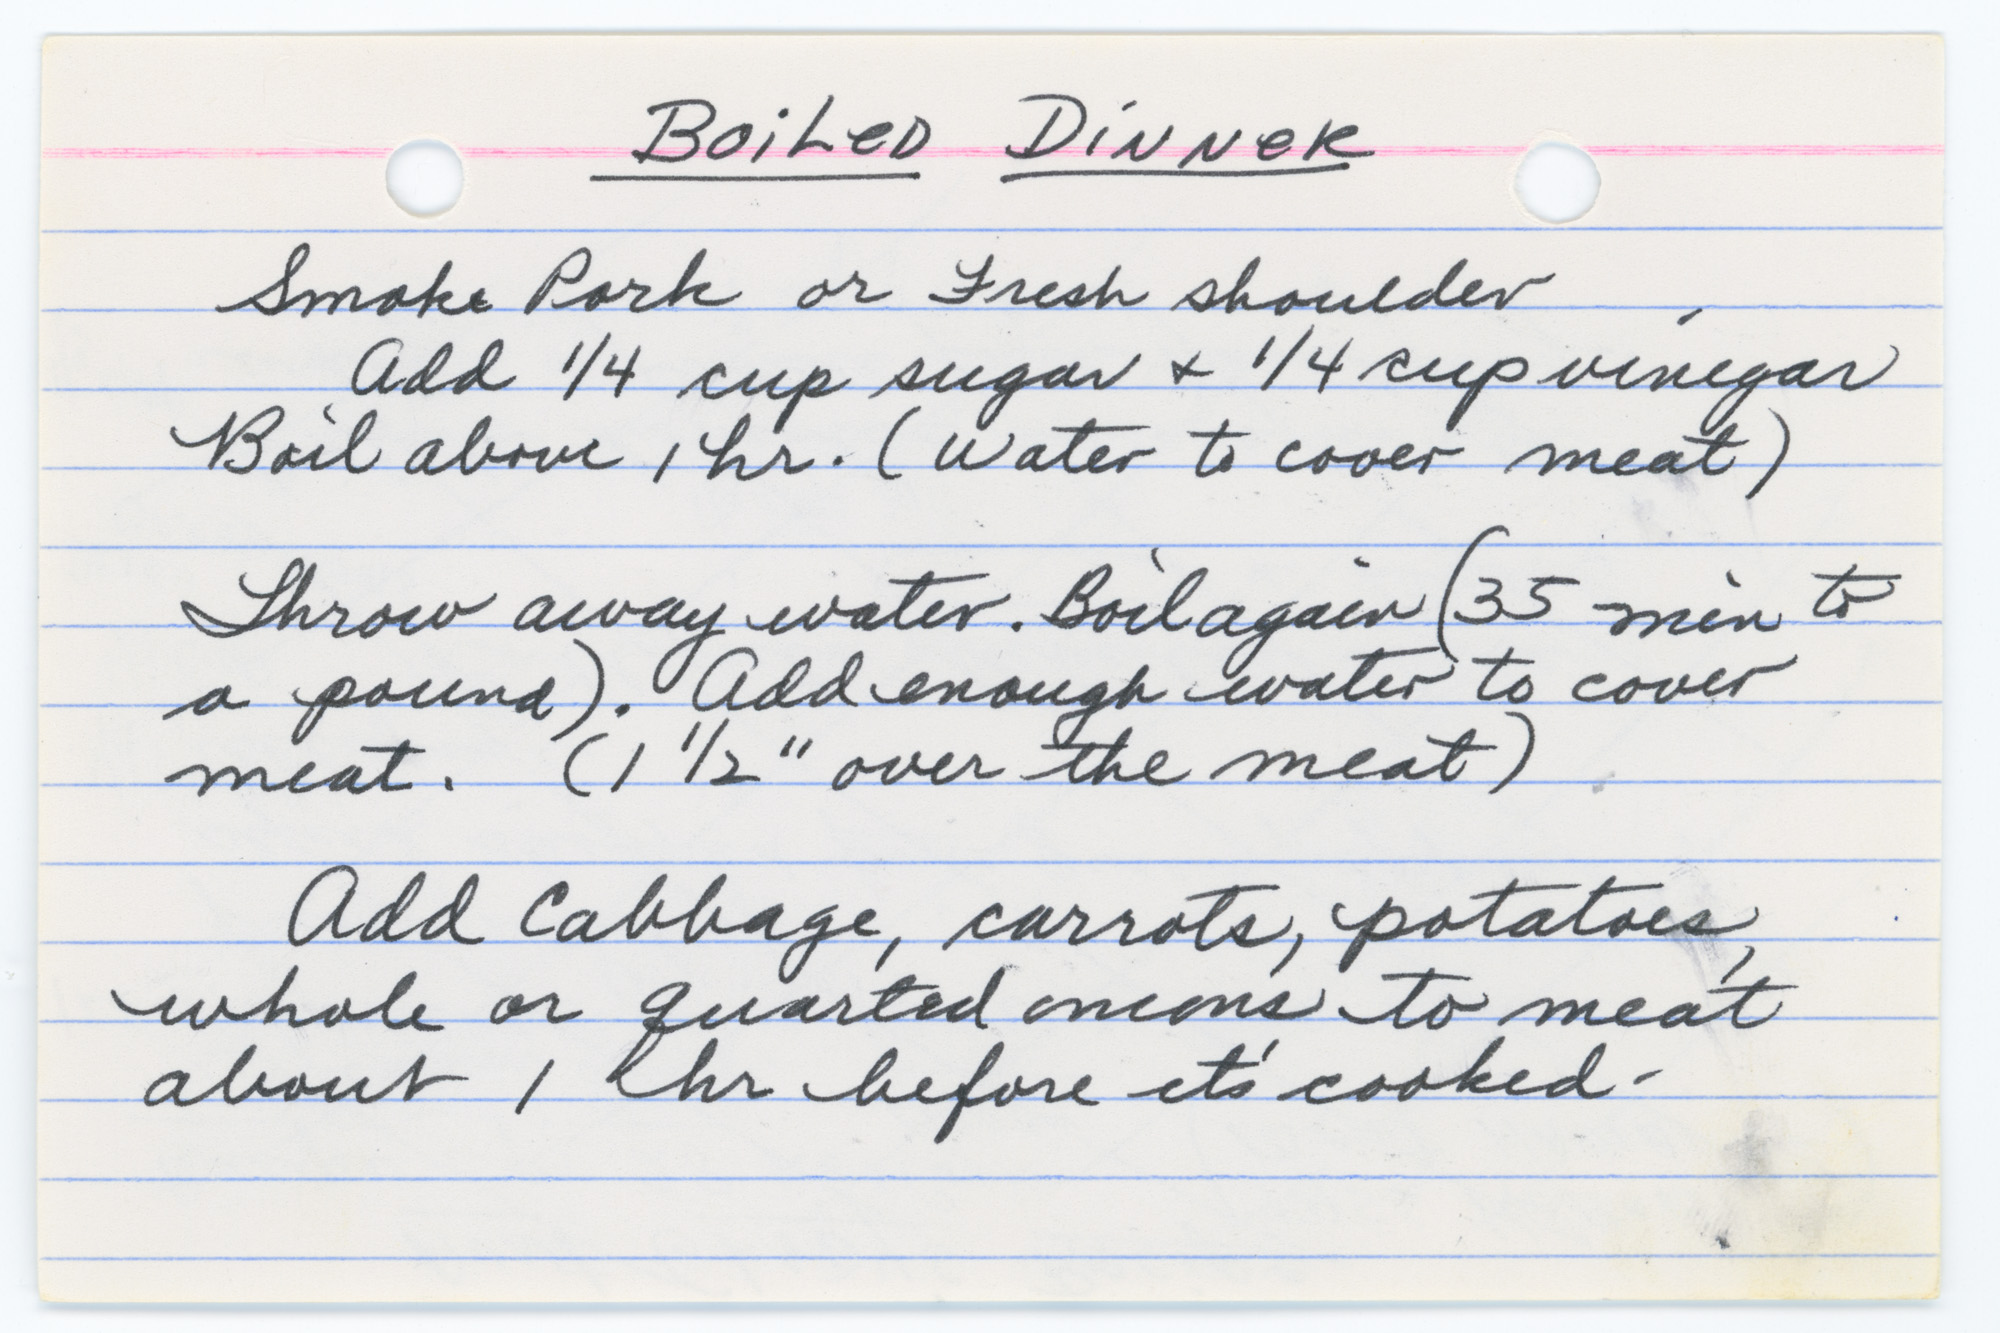 Boiled Dinner
Smoke Pork or Fresh shoulder
Add 1/4 cup sugar & 1/4 cup vinegar
Boil above 1 hr. (Water to cover meat)
Throw away water. Boil again (35 min to
a pound). Add enough water to cover
meat. (1 1/2" over the meat)
Add Cabbage, carrots, potatoes,
whole or quarted onions to meat
about 1 hr before it's cooked-